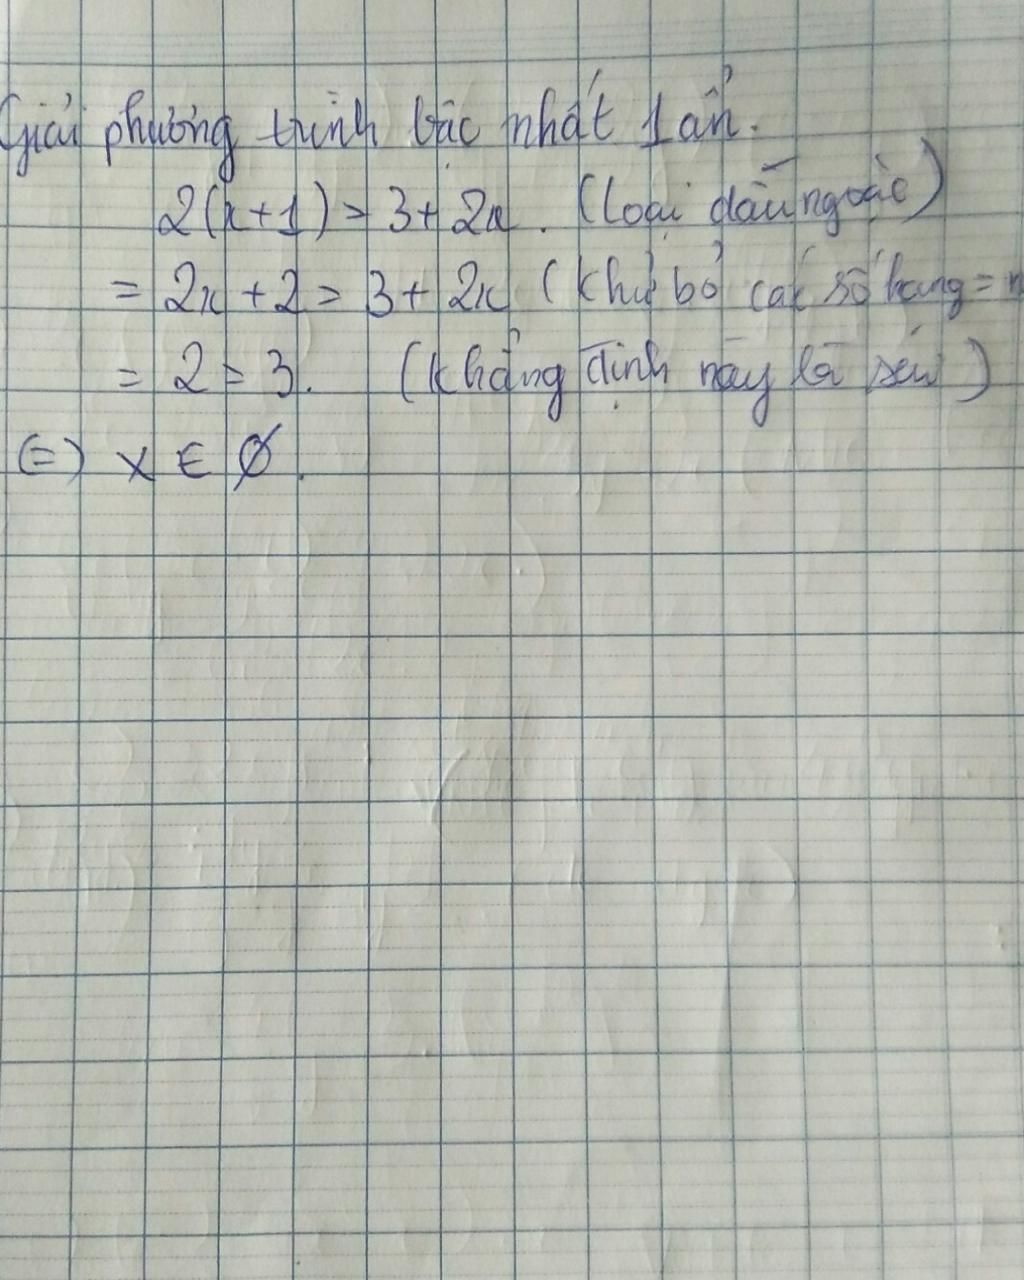 Giải phương trình bậc nhất 1 ẩn.
2(x+1) = 3+2x. (loại dấu ngoặc)
= 2x+2 = 3+2x (khử bỏ các số hạng =
= 2 = 3. (khẳng định này là sai)
(=) x ∈ ∅.